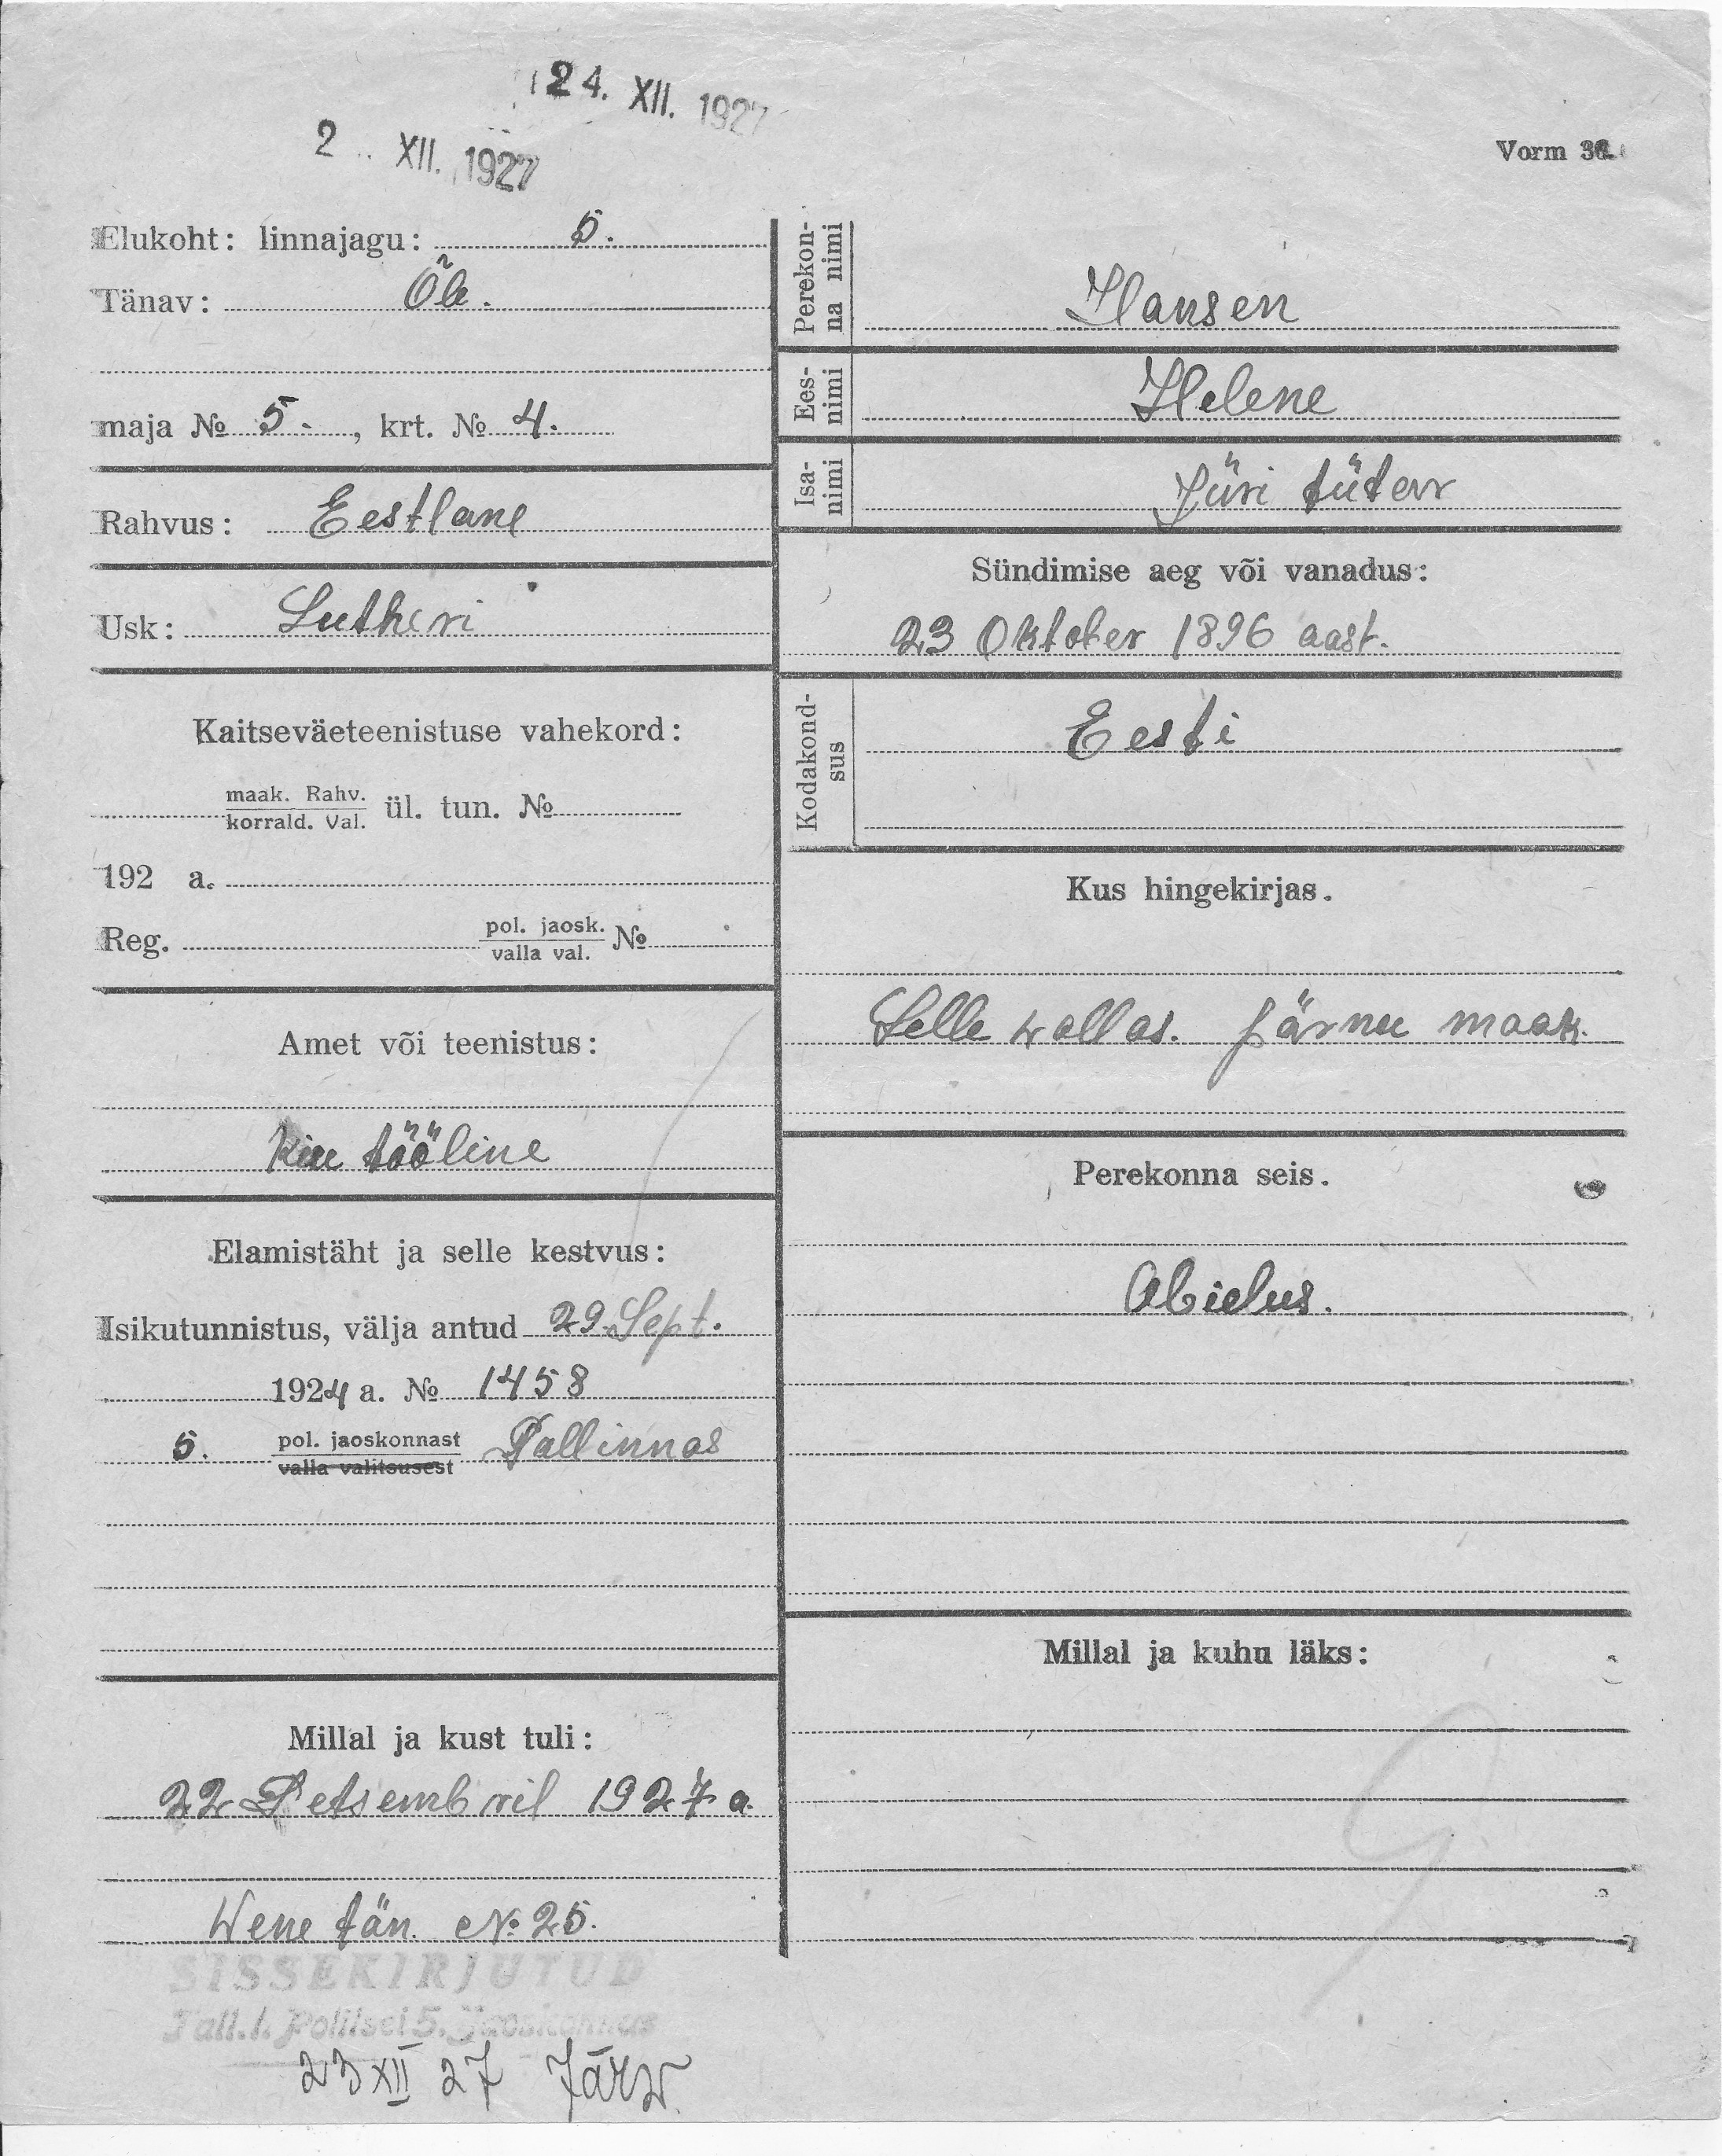 24. XII. 1927
2 XII. 1927
Vorm 36.
Elukoht: linnajagu: 5.
Tänav: Õle.
maja № 5., krt. № 4.
Rahvus: Eestlane
Usk: Lutheri
Kaitseväeteenistuse vahekord:
maak. Rahv.
korrald. Val. ül. tun. №
192 a.
Reg. pol. jaosk.
valla val. №
Amet või teenistus:
Kiu tööline
Elamistäht ja selle kestvus:
Isikutunnistus, välja antud 29 Sept.
1924 a. № 1458
5. pol. jaoskonnast Tallinnas
valla valitsusest
Millal ja kust tuli:
22 Detsembril 1927 a.
Wene tän. № 25.
SISSEKIRJUTUD
Tall.l. Politsei 5. Jaoskonnas
23 XII 27 Järw.
Perekon-
na nimi
Hansen
Ees-
nimi
Helene
Isa-
nimi
Jüri tütar
Sündimise aeg või vanadus:
23 Oktober 1896 aast.
Kodakond-
sus
Eesti
Kus hingekirjas.
Selle wallas. Pärnu maak.
Perekonna seis.
Abielus.
Millal ja kuhu läks: